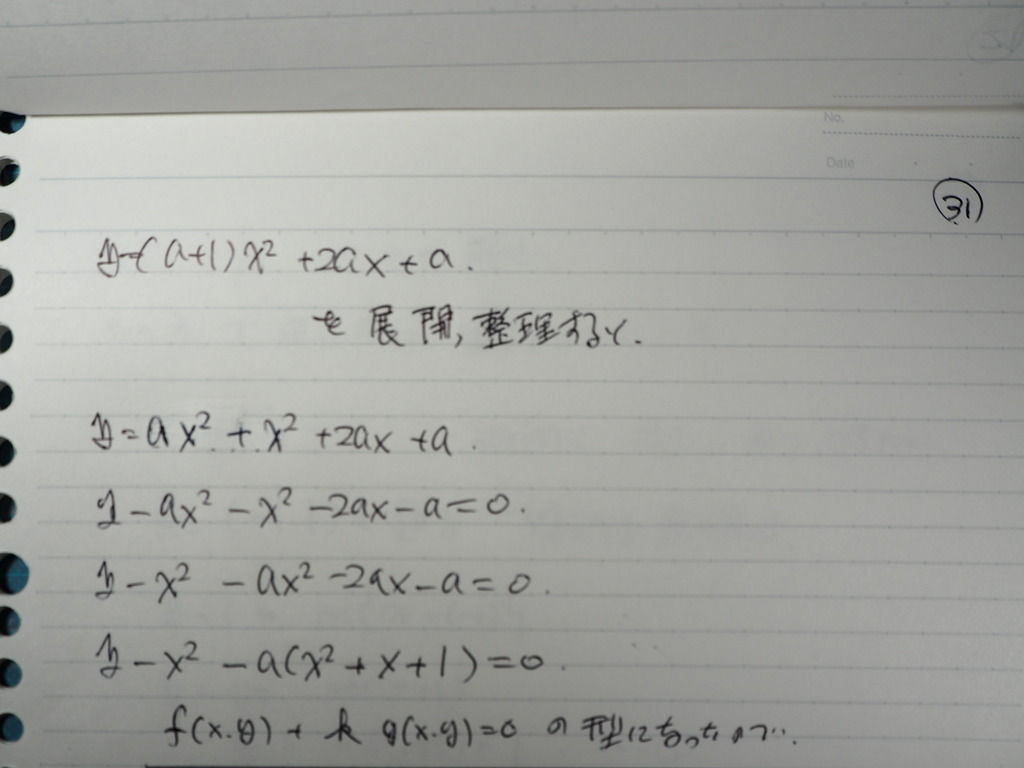 No.
Date
31
y=(a+1)x²+2ax+a.
を展開,整理すると.
y=ax²+x²+2ax+a.
y-ax²-x²-2ax-a=0.
y-x²-ax²-2ax-a=0.
y-x²-a(x²+x+1)=0.
f(x.y)+k g(x.y)=0 の型になったので..